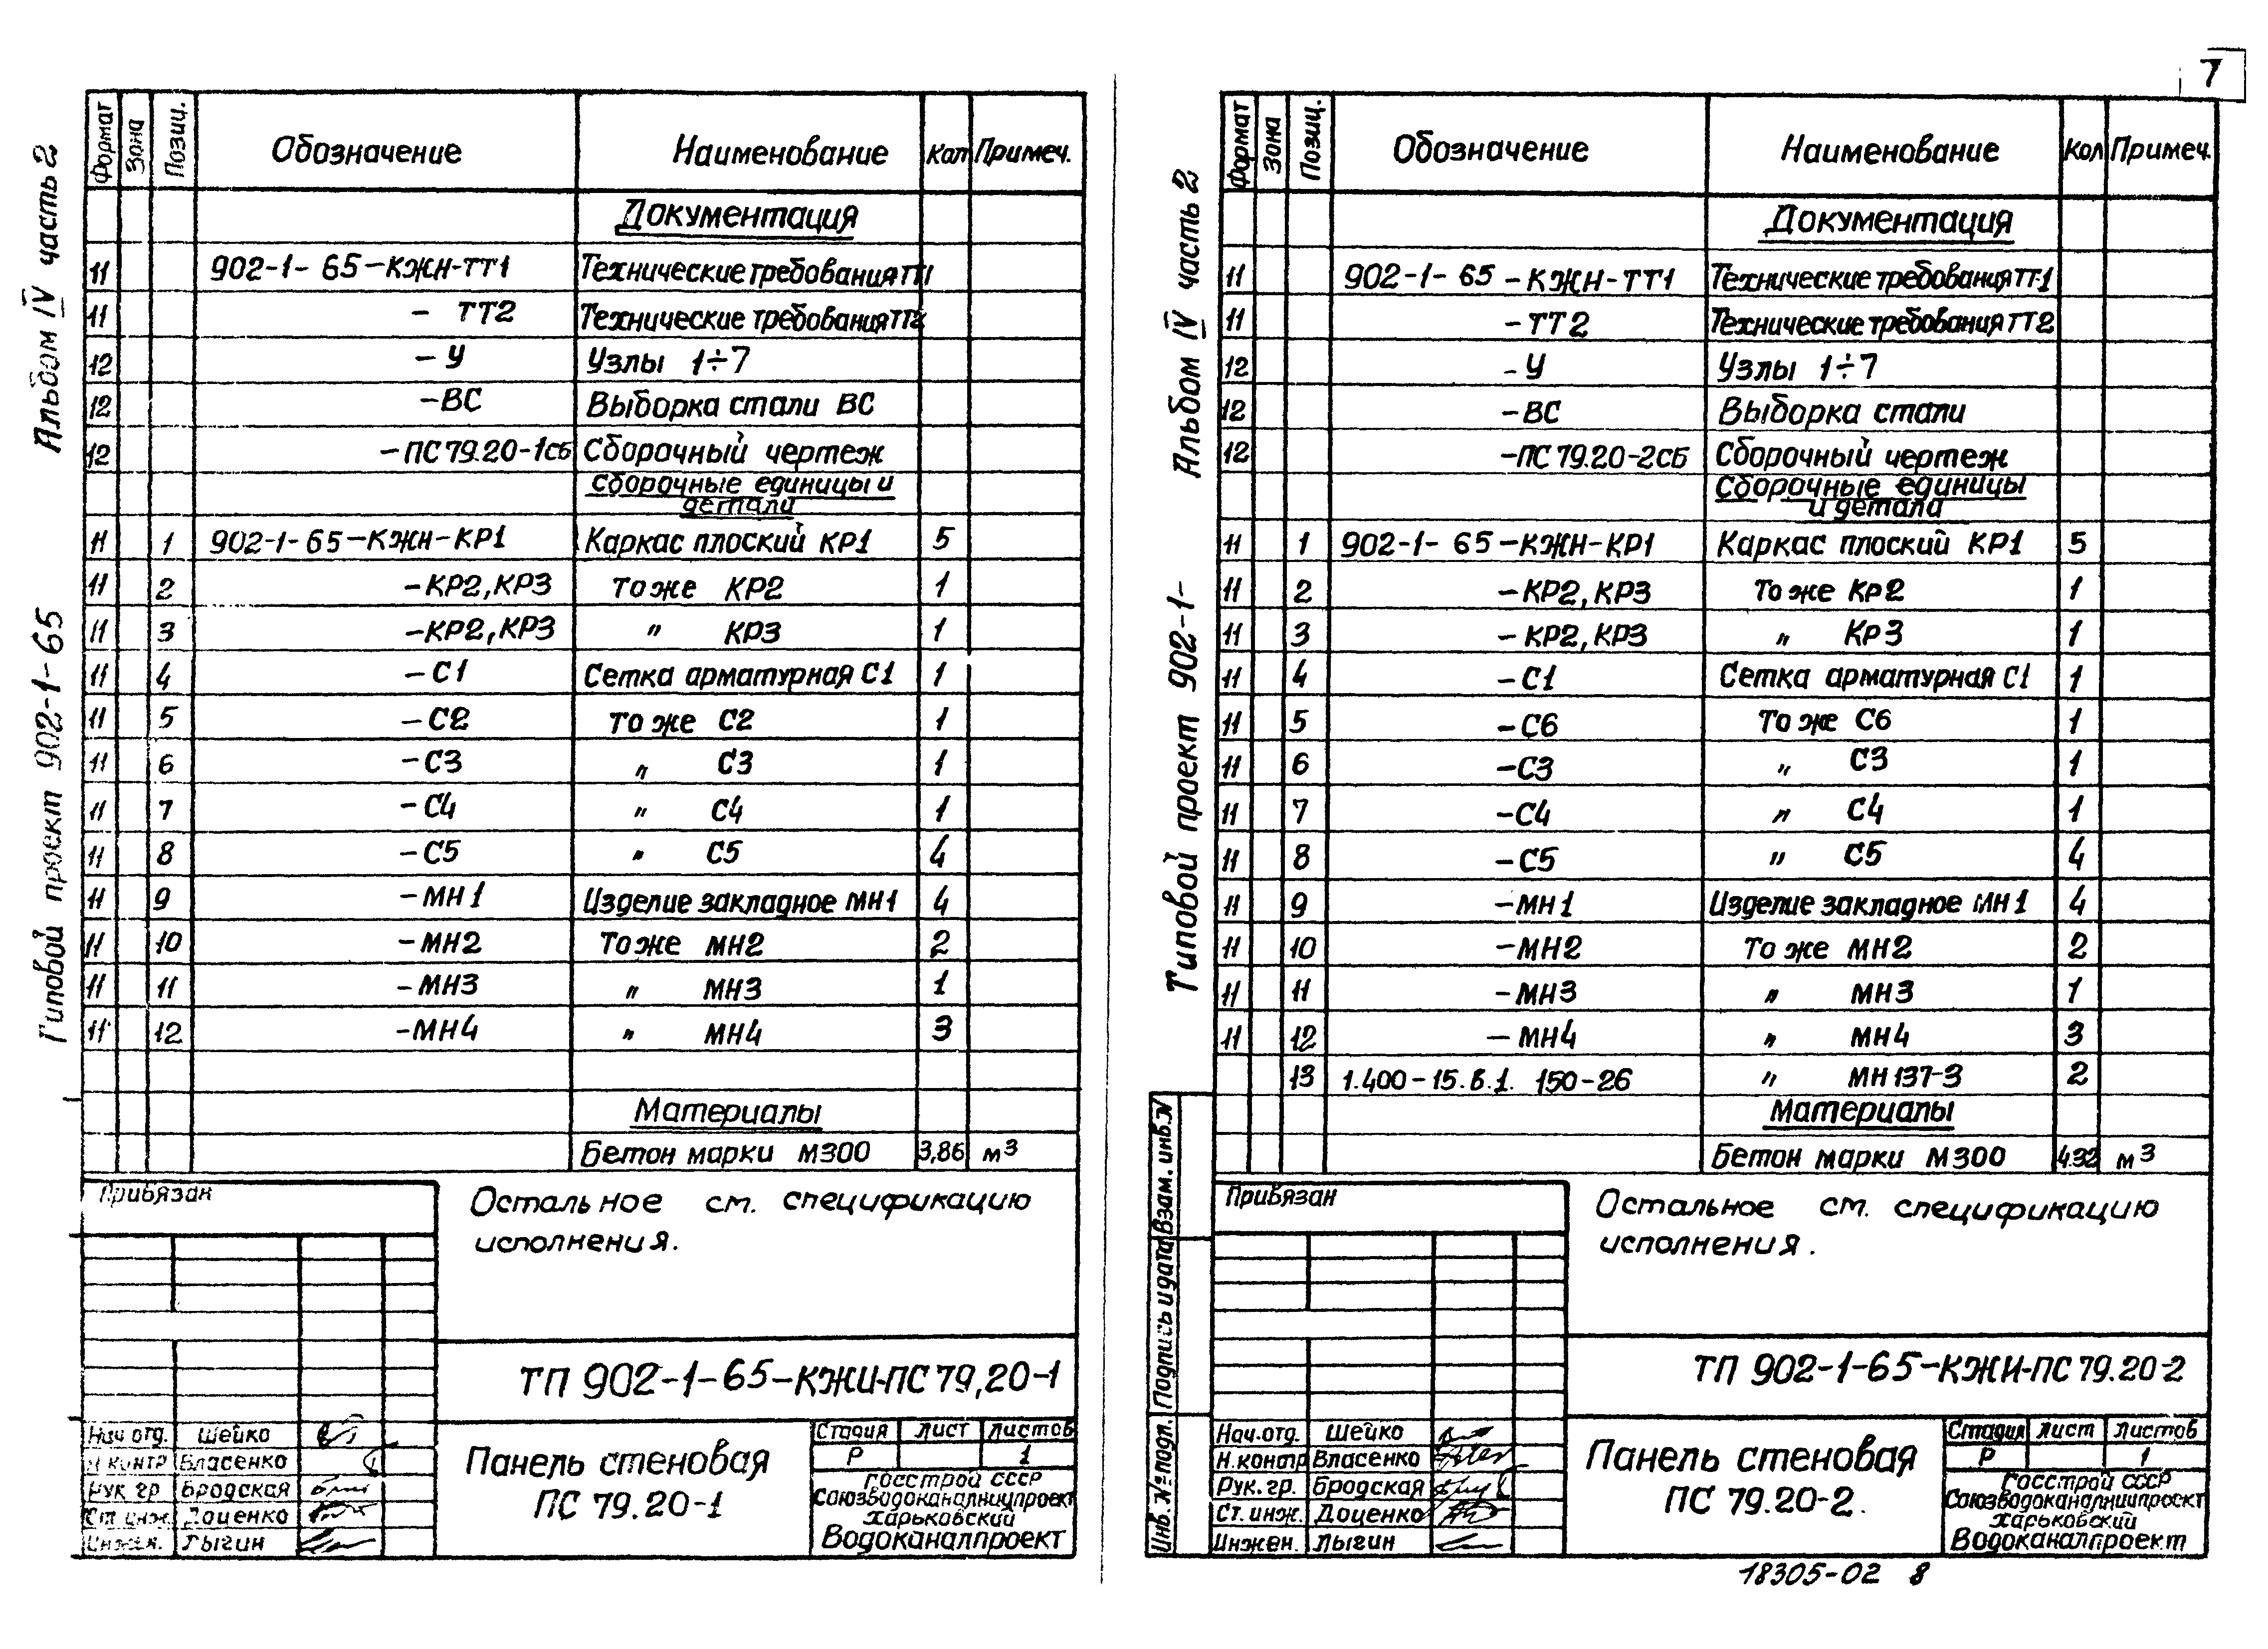 7
Альбом IV часть 2
Типовой проект 902-1-65
Формат Зона Позиц. Обозначение Наименование Кол Примеч.
Документация
11 902-1-65-КЖН-ТТ1 Технические требования ТТ1
11 - ТТ2 Технические требования ТТ2
12 - У Узлы 1÷7
12 -ВС Выборка стали ВС
12 -ПС 79.20-1сб Сборочный чертеж
Сборочные единицы и
детали
11 1 902-1-65-КЖН-КР1 Каркас плоский КР1 5
11 2 -КР2,КР3 То же КР2 1
11 3 -КР2,КР3 " КР3 1
11 4 -С1 Сетка арматурная С1 1
11 5 -С2 То же С2 1
11 6 -С3 " С3 1
11 7 -С4 " С4 1
11 8 -С5 " С5 4
11 9 -МН1 Изделие закладное МН1 4
11 10 -МН2 То же МН2 2
11 11 -МН3 " МН3 1
11 12 -МН4 " МН4 3
Материалы
Бетон марки М300 3,86 м3
Привязан
Остальное см. спецификацию
исполнения.
ТП 902-1-65-КЖИ-ПС 79,20-1
Нач отд. Шейко
Н контр Власенко
Рук гр Бродская
Ст инж. Доценко
Инжен. Лыгин
Панель стеновая
ПС 79.20-1
Стадия Лист Листов
Р 1
Госстрой СССР
Союзводоканалниипроект
Харьковский
Водоканалпроект
Альбом IV часть 2
Типовой проект 902-1-
Формат Зона Позиц. Обозначение Наименование Кол Примеч.
Документация
11 902-1-65-КЖН-ТТ1 Технические требования ТТ-1
11 -ТТ2 Технические требования ТТ2
12 - У Узлы 1÷7
12 -ВС Выборка стали
12 -ПС 79.20-2СБ Сборочный чертеж
Сборочные единицы
и детала
11 1 902-1-65-КЖН-КР1 Каркас плоский КР1 5
11 2 -КР2,КР3 То же Кр2 1
11 3 -КР2,КР3 " КР3 1
11 4 -С1 Сетка арматурная С1 1
11 5 -С6 То же С6 1
11 6 -С3 " С3 1
11 7 -С4 " С4 1
11 8 -С5 " С5 4
11 9 -МН1 Изделие закладное МН1 4
11 10 -МН2 То же МН2 2
11 11 -МН3 " МН3 1
11 12 -МН4 " МН4 3
13 1.400-15.В.1. 150-26 " МН137-3 2
Материалы
Бетон марки М300 4.32 м3
Инв. №подл. Подпись и дата Взам. инв.N
Привязан
Остальное см. спецификацию
исполнения.
ТП 902-1-65-КЖИ-ПС 79.20-2
Нач.отд. Шейко
Н.контр Власенко
Рук. гр. Бродская
Ст. инж. Доценко
Инжен. Лыгин
Панель стеновая
ПС 79.20-2.
Стадия Лист Листов
Р 1
Госстрой СССР
Союзводоканалниипроект
Харьковский
Водоканалпроект
18305-02 8